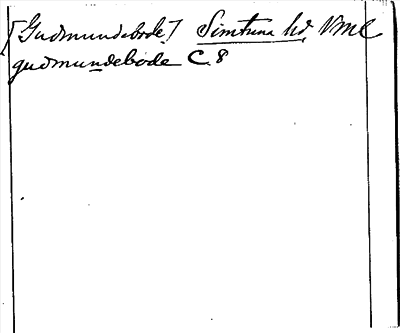 [Gudmundebode] Simtuna hd, Vml
gudmundebode C 8